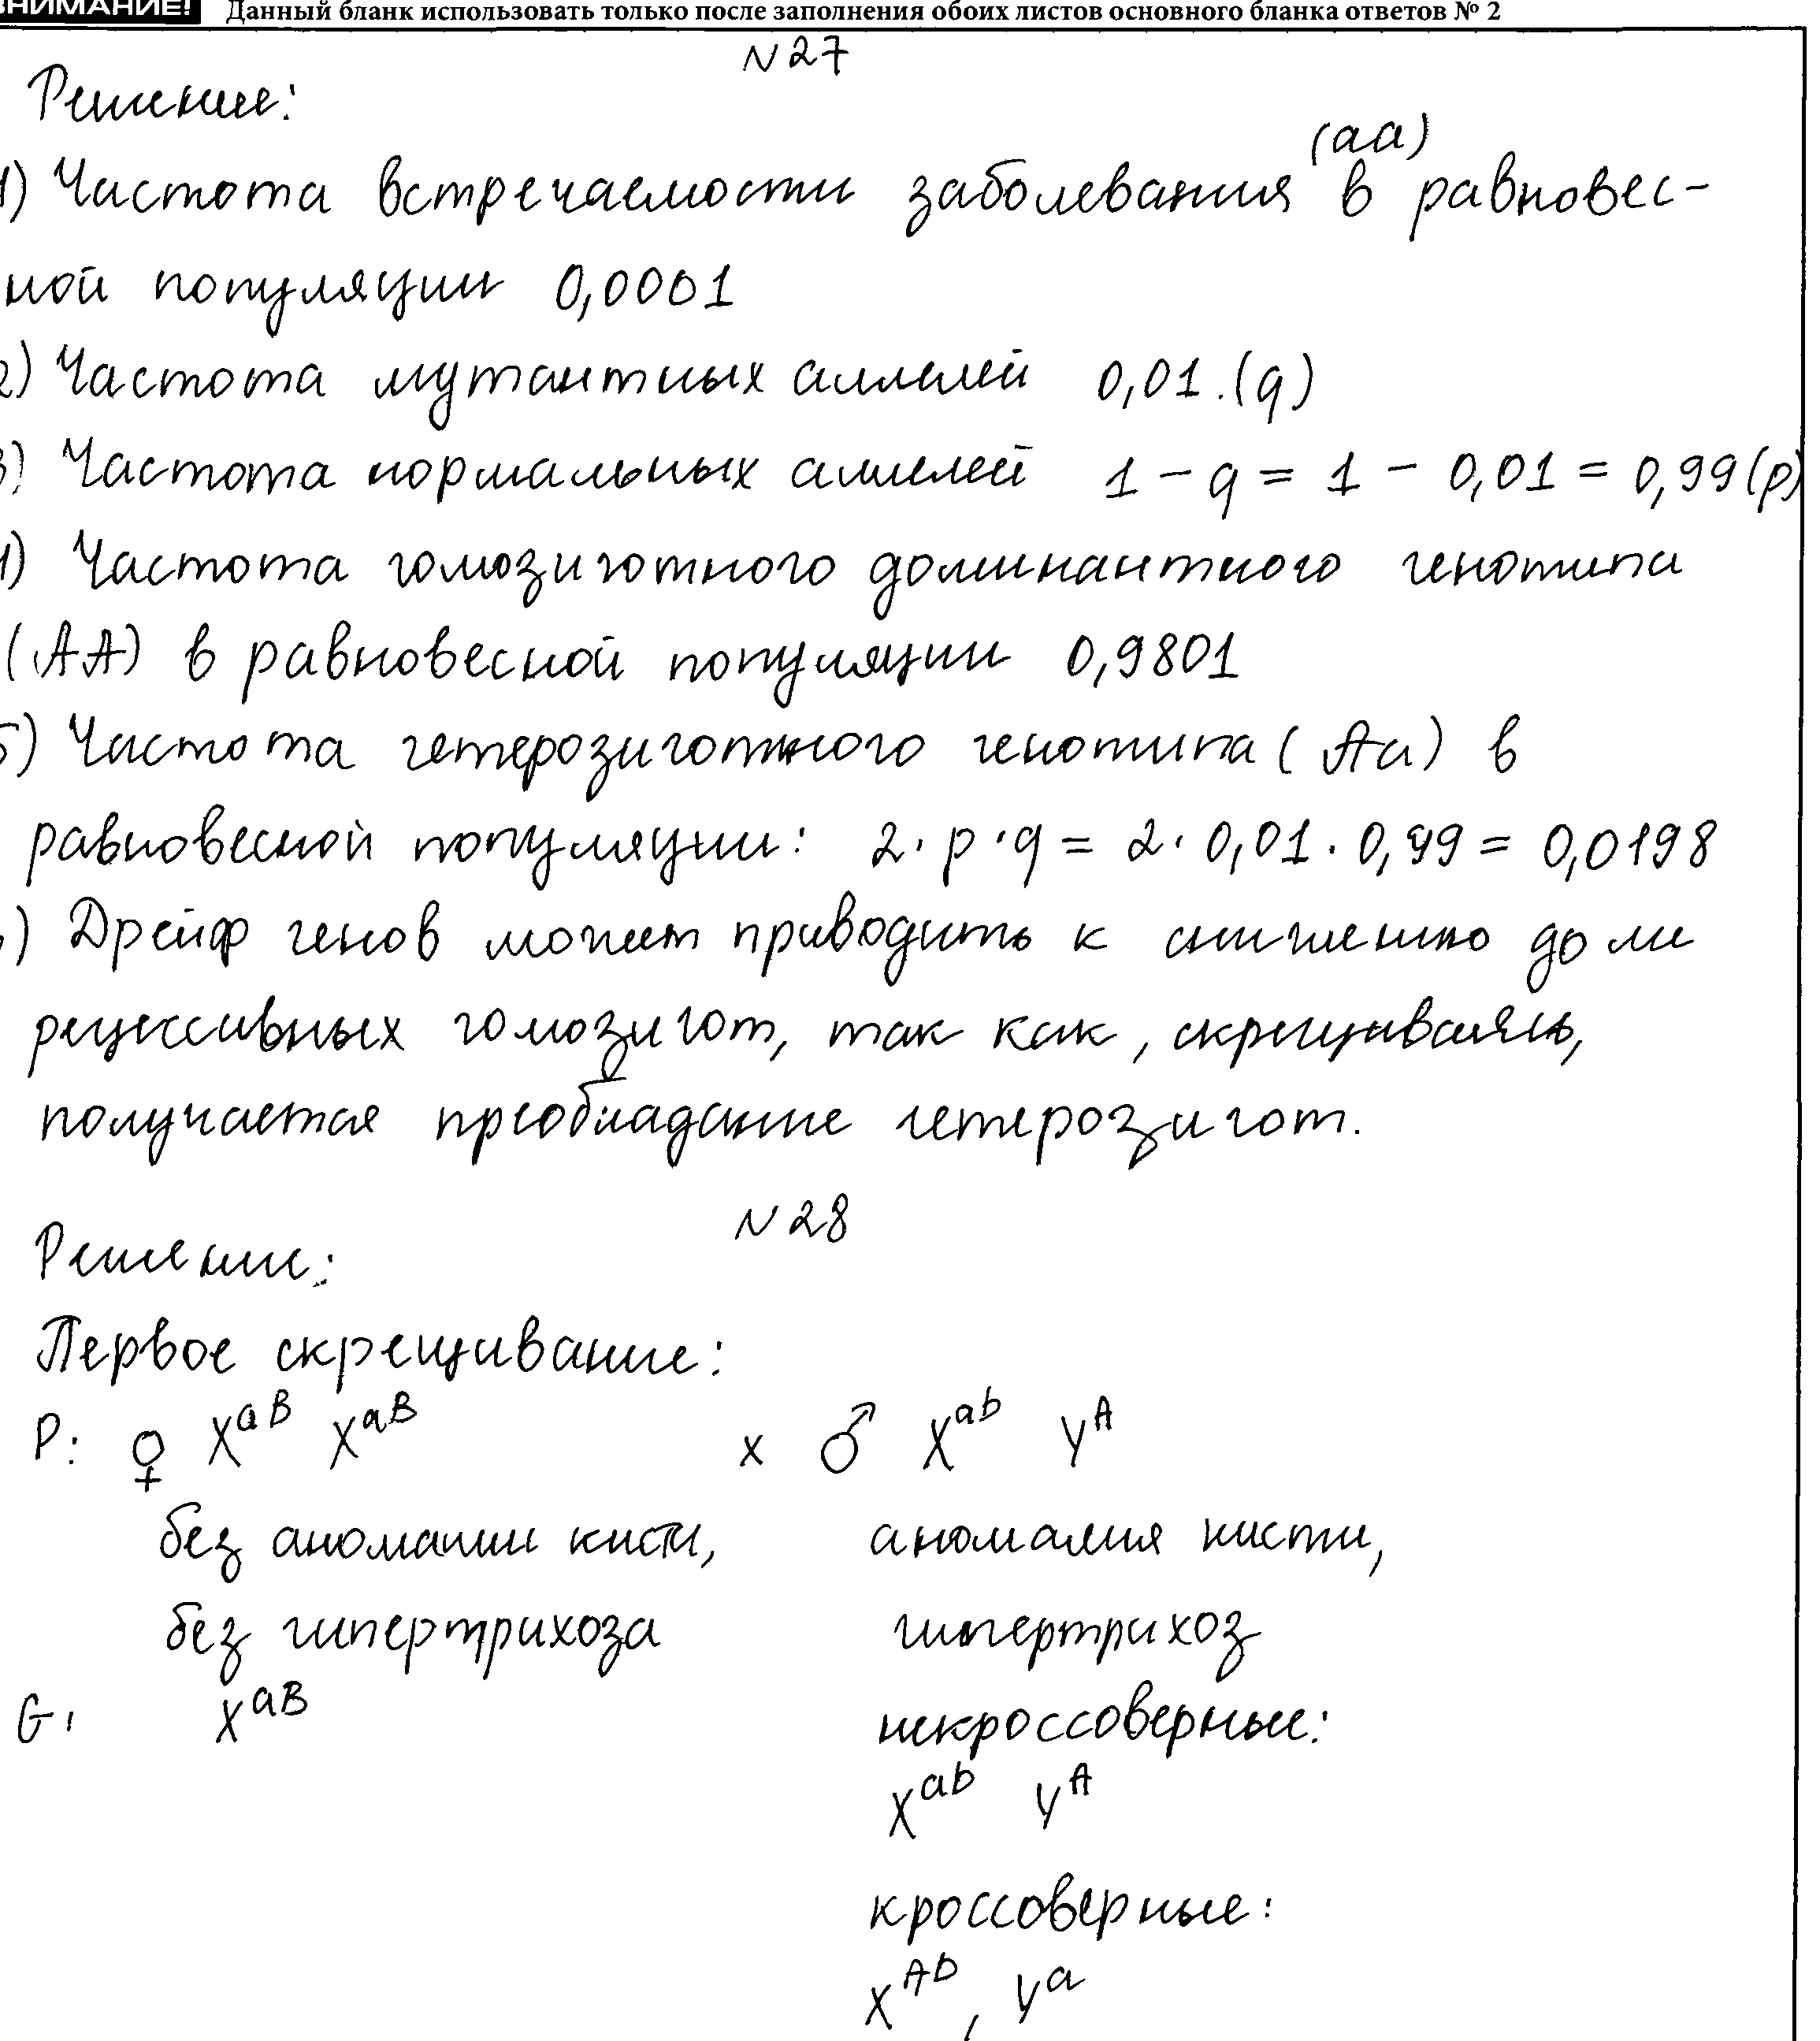 ВНИМАНИЕ! Данный бланк использовать только после заполнения обоих листов основного бланка ответов № 2
N 27
Решение:
1) Частота встречаемости заболевания (aa) в равновес-
ной популяции 0,0001
2) Частота мутантных аллелей 0,01.(q)
3) Частота нормальных аллелей 1 - q = 1 - 0,01 = 0,99 (p)
4) Частота гомозиготного доминантного генотипа
(AA) в равновесной популяции 0,9801
5) Частота гетерозиготного генотипа (Aa) в
равновесной популяции: 2 · p · q = 2 · 0,01 · 0,99 = 0,0198
) Дрейф генов может приводить к снижению доли
рецессивных гомозигот, так как, скрещиваясь,
получается преобладание гетерозигот.
N 28
Решение:
Первое скрещивание:
P: ♀ X^aB X^aB x ♂ X^ab Y^A
без аномалии кисти, аномалия кисти,
без гипертрихоза гипертрихоз
G: X^aB некроссоверные:
X^ab Y^A
кроссоверные:
X^Ab, Y^a